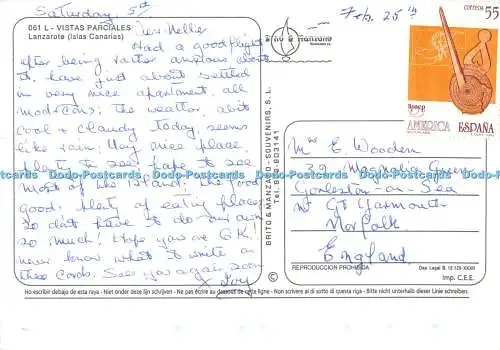 Saturday 5th
061 L - VISTAS PARCIALES
Lanzarote (Islas Canarias)
Dear Nellie
Had a good flight
after being rather anxious about
it, have just about settled
in very nice apartment, all
mod cons; the weather, a bit
cool & cloudy today, seems
like rain. Very nice place,
plenty to see, hope to see
most of the island; the food
good, plenty of eating places,
so don't have to do our own
so much! Hope you are O.K.!
never know what to write on
these cards. See you again soon
x Joy
BRITO & MANZANO SOUVENIRS, S. L.
Feb. 25th
CORREOS 55
AMERICA ESPAÑA
Mrs E. Wooden
39 Magnolia Green
Gorleston-on-Sea
Nr Gt Yarmouth
Norfolk
England
REPRODUCCION PROHIBIDA
Imp. C.E.E.
No escribir debajo de esta raya - Non write under this line - Ne pas écrire au dessous de cette ligne - Non scrivere al di sotto di questa riga - Bitte nicht unterhalb dieser Linie schreiben.
Dodo-Postcards Dodo-Postcards Dodo-Postcards Dodo-Postcards Dodo-Postcards